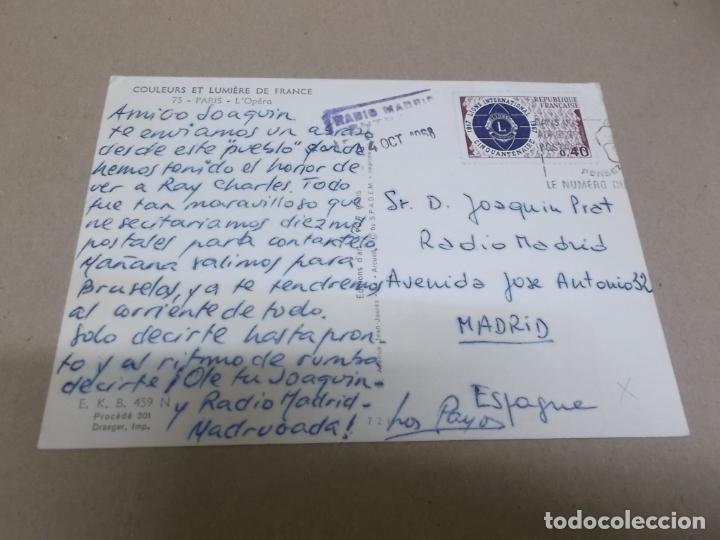 COULEURS ET LUMIÈRE DE FRANCE
75 - PARIS - L'Opéra
Amigo Joaquin
te enviamos un abrazo
desde este "pueblo" donde
hemos tenido el honor de
ver a Ray Charles. Todo
fue tan maravilloso que
necesitariamos diezmil
postales para contartelo.
Mañana salimos para
Bruselas, ya te tendremos
al corriente de todo.
Solo decirte hasta pron-
to y al ritmo de rumba
decirte ¡Ole tu Joaquin-
y Radio Madrid-
Madrugada!
Los Payos
E. K. B. 459 N
Procédé 301
Draeger, Imp.
RADIO MADRID
4 OCT 1968
1917 LIONS INTERNATIONAL 1967
CINQUANTENAIRE
L
REPUBLIQUE
FRANÇAISE
POSTES
0,40
PENSEZ
LE NUMÉRO DU
Sr. D. Joaquin Prat
Radio Madrid
Avenida Jose Antonio 32
MADRID
Espagne
X
72
todocoleccion
todocoleccion.net